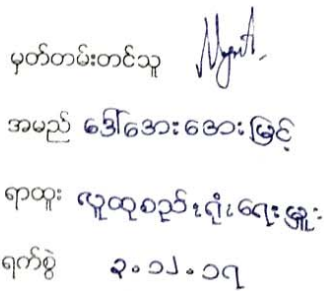 မှတ်တမ်းတင်သူ
အမည် ဒေါ်အေးအေးမြင့်
ရာထူး လူထုစည်းရုံးရေးမှူး
ရက်စွဲ ၃.၁၂.၁၇